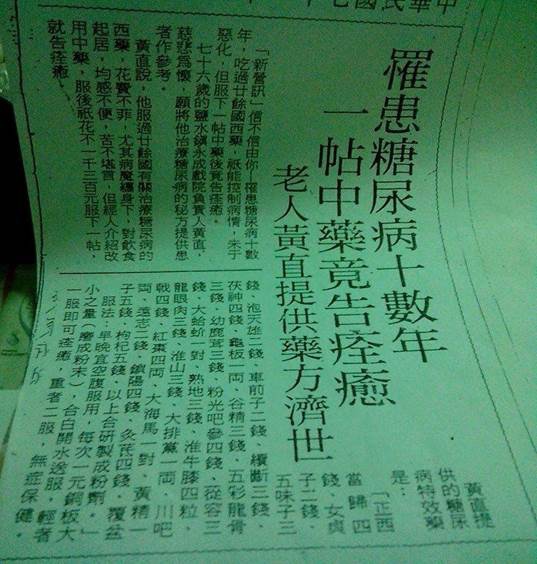 中華民國七十
罹患糖尿病十數年
一帖中藥竟告痊癒
老人黃直提供藥方濟世
「新營訊」信不信由你—罹患糖尿病十數
年，吃過廿餘國西藥，祇能控制病情，未于
惡化，但服下一帖中藥後竟告痊癒。
七十六歲的鹽水鎮永成戲院負責人黃直，
慈悲為懷，願將他治療糖尿病的秘方提供患
者作參考。
黃直說，他服過廿餘國有關治療糖尿病的
西藥，花費不菲，尤其病魔纏身下，對飲食
起居，均感不便，苦不堪言，但經人介紹改
用中藥，服後祇花不一千三百元服下一帖，
就告痊癒。
黃直提
供的糖尿
病特效藥
是：
「正西
當歸四
錢、女貞
子二錢、
五味子三
錢、泡天雄二錢、車前子二錢、續斷三錢、
茯神四錢、龜板一両、谷精三錢、五彩龍骨
三錢、幼鹿茸三錢、粉光吧參四錢、從容三
錢、大蛤蚧一對、熟地三錢、淮牛膝四粒、
龍眼肉三錢、淮山三錢、大排黨一両、川吧
戟四錢、紅棗四両、大海馬一對、黃精一
両、遠志二錢、鎖陽四錢、炙芪四錢、覆盆
子五錢、枸杞五錢、以上合研製成粉劑。」
服法：早晚宜空腹服用，每次一元銅板大
小之量（磨成粉末），合白開水送服，輕者
一服即可痊癒，重者二服，無症保健。